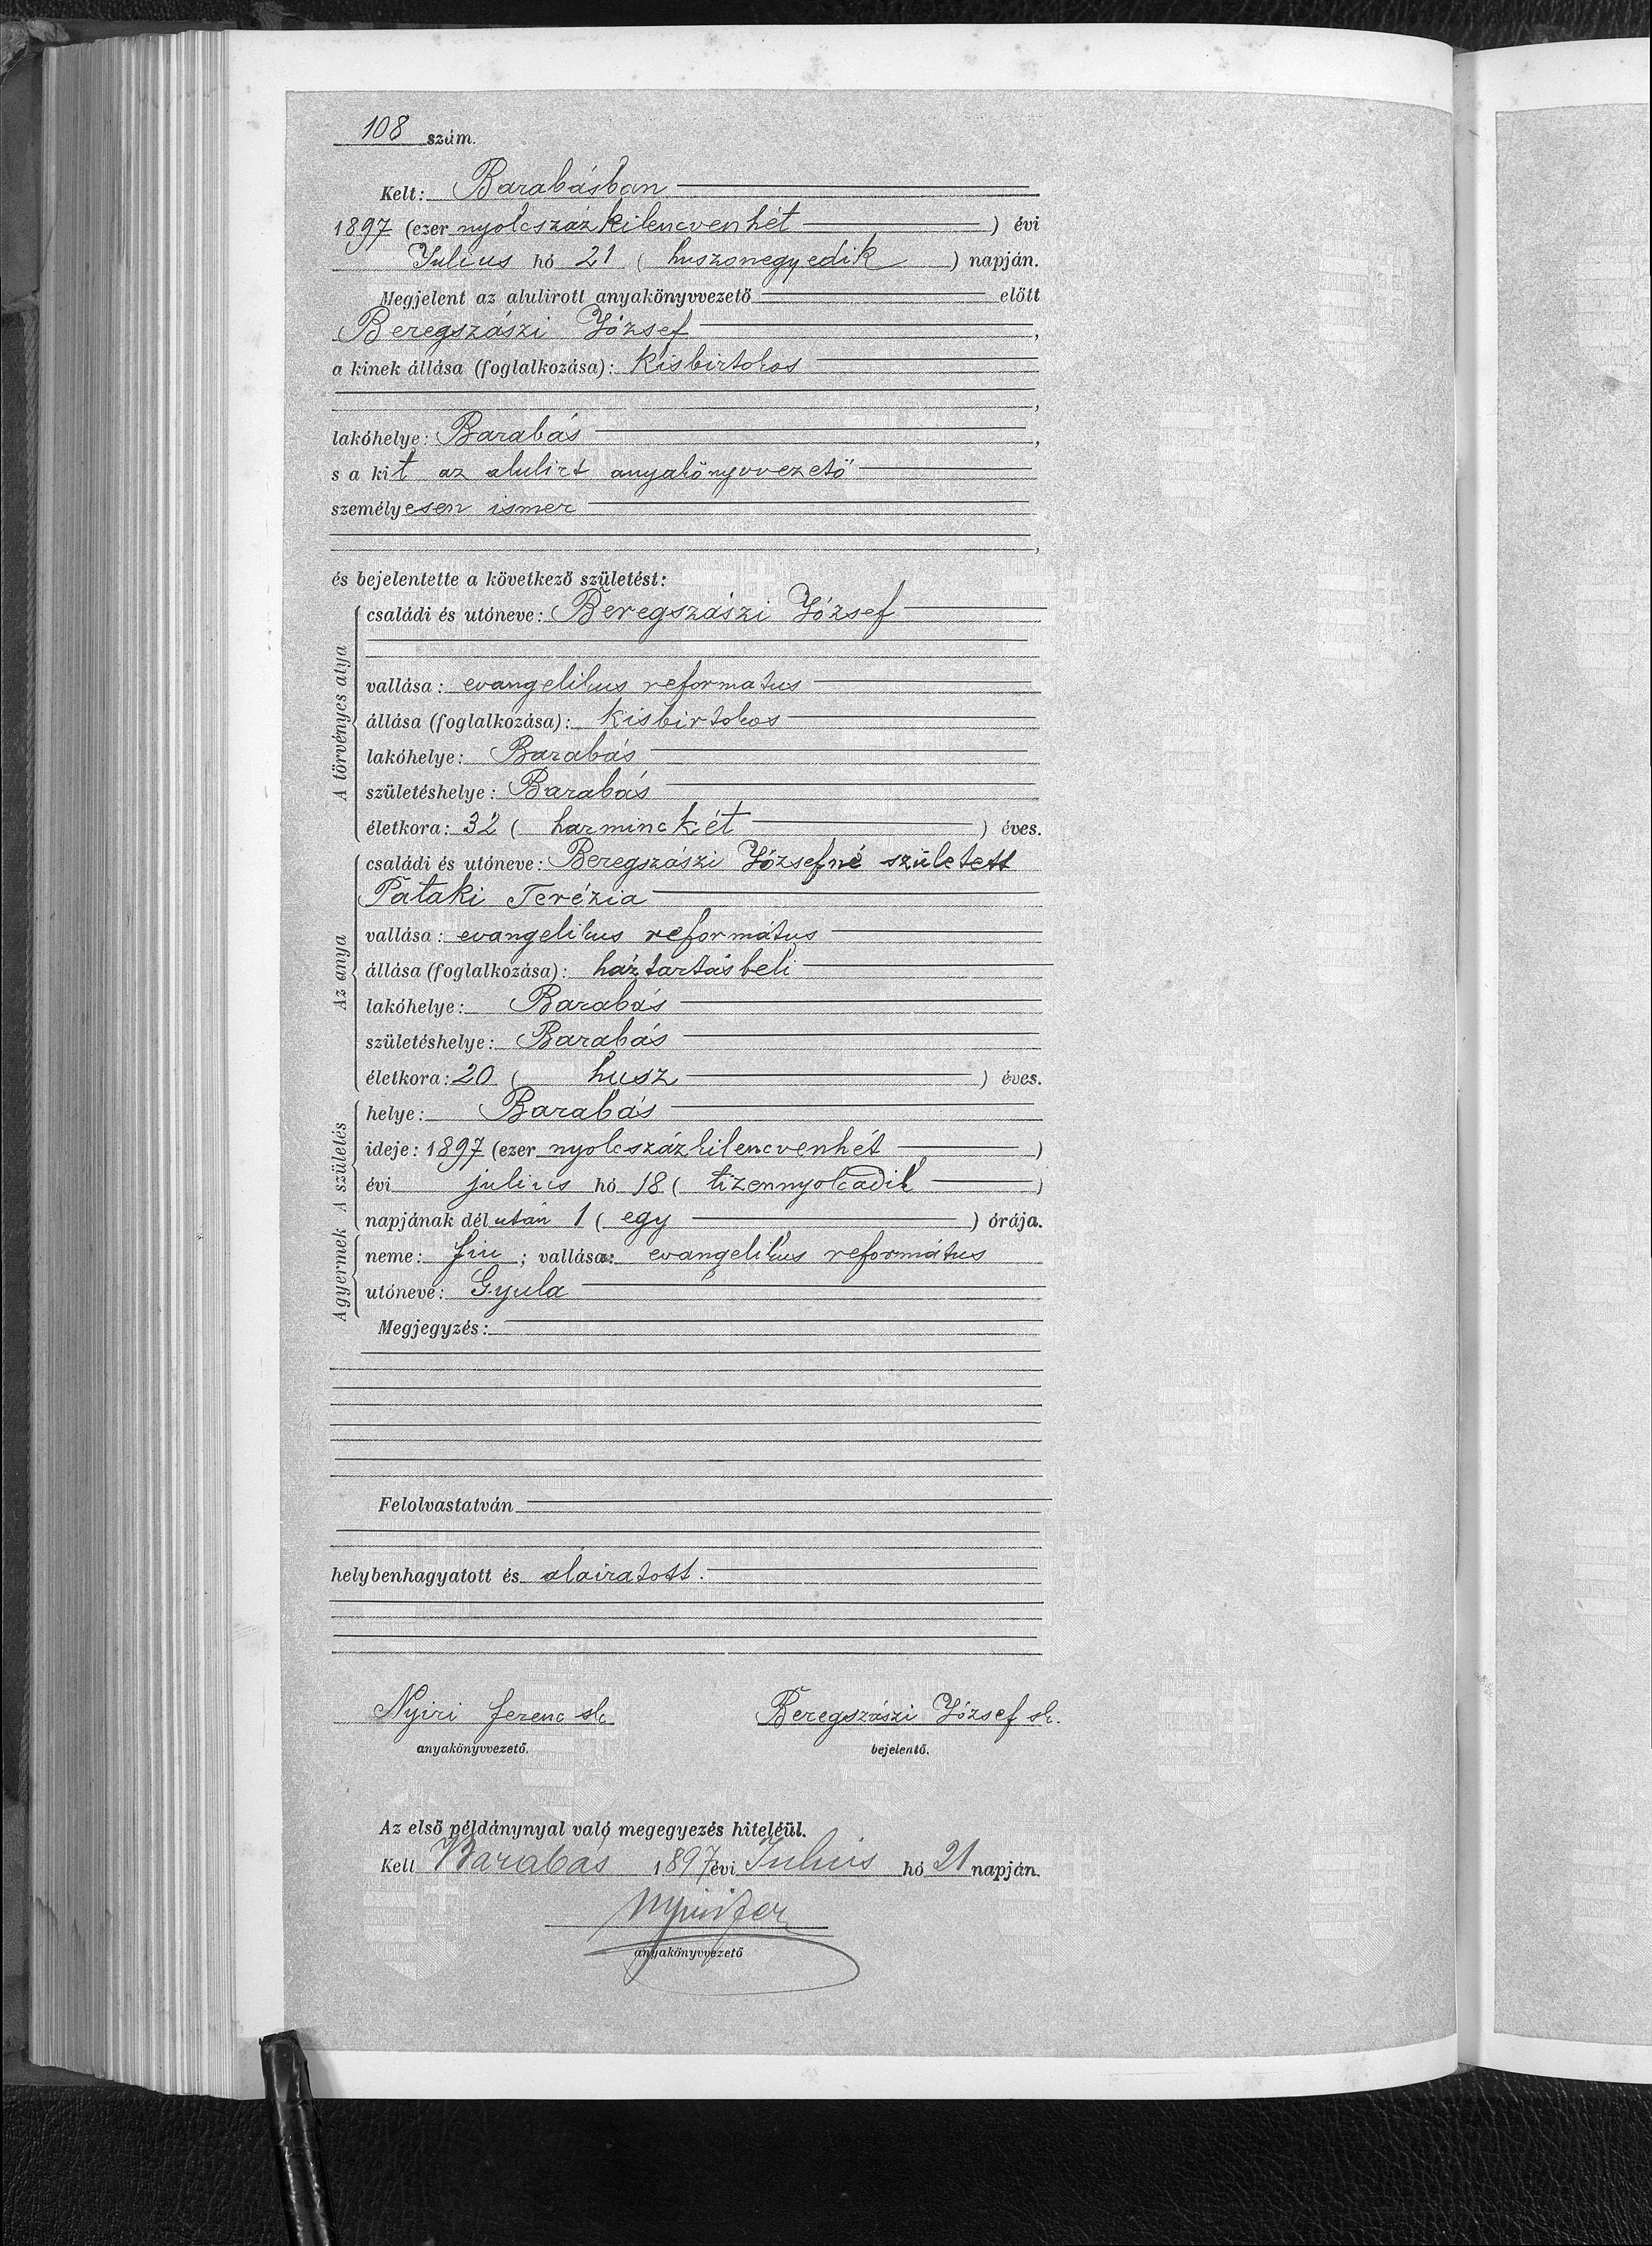 108 szám.
Kelt: Barabásban
1897 (ezer nyolcszáz kilencvenhét) évi
Julius hó 21 (huszonegyedik) napján.
Megjelent az alulirott anyakönyvvezető előtt
Beregszászi József,
a kinek állása (foglalkozása): kisbirtokos
,
lakóhelye: Barabás,
s a kit az alulirt anyakönyvvezető
személyesen ismer
,
és bejelentette a következő születést:
A törvényes atya
családi és utóneve: Beregszászi József
vallása: evangelikus reformatus
állása (foglalkozása): kisbirtokos
lakóhelye: Barabás
születéshelye: Barabás
életkora: 32 (harminckét) éves.
Az anya
családi és utóneve: Beregszászi Józsefné született
Pataki Terézia
vallása: evangelikus református
állása (foglalkozása): háztartásbeli
lakóhelye: Barabás
születéshelye: Barabás
életkora: 20 (husz) éves.
A születés
helye: Barabás
ideje: 1897 (ezer nyolcszázkilencvenhét)
évi julius hó 18 (tizennyolcadik)
napjának dél után 1 (egy) órája.
A gyermek
neme: fiu; vallása: evangelikus református
utóneve: Gyula
Megjegyzés:
Felolvastatván
helybenhagyatott és aláiratott.
Nyiri Ferenc sk. Beregszászi József sk.
anyakönyvvezető. bejelentő.
Az első példánynyal való megegyezés hiteléül.
Kelt Barabás 1897 évi Julius hó 21 napján.
Nyiri Fer
anyakönyvvezető